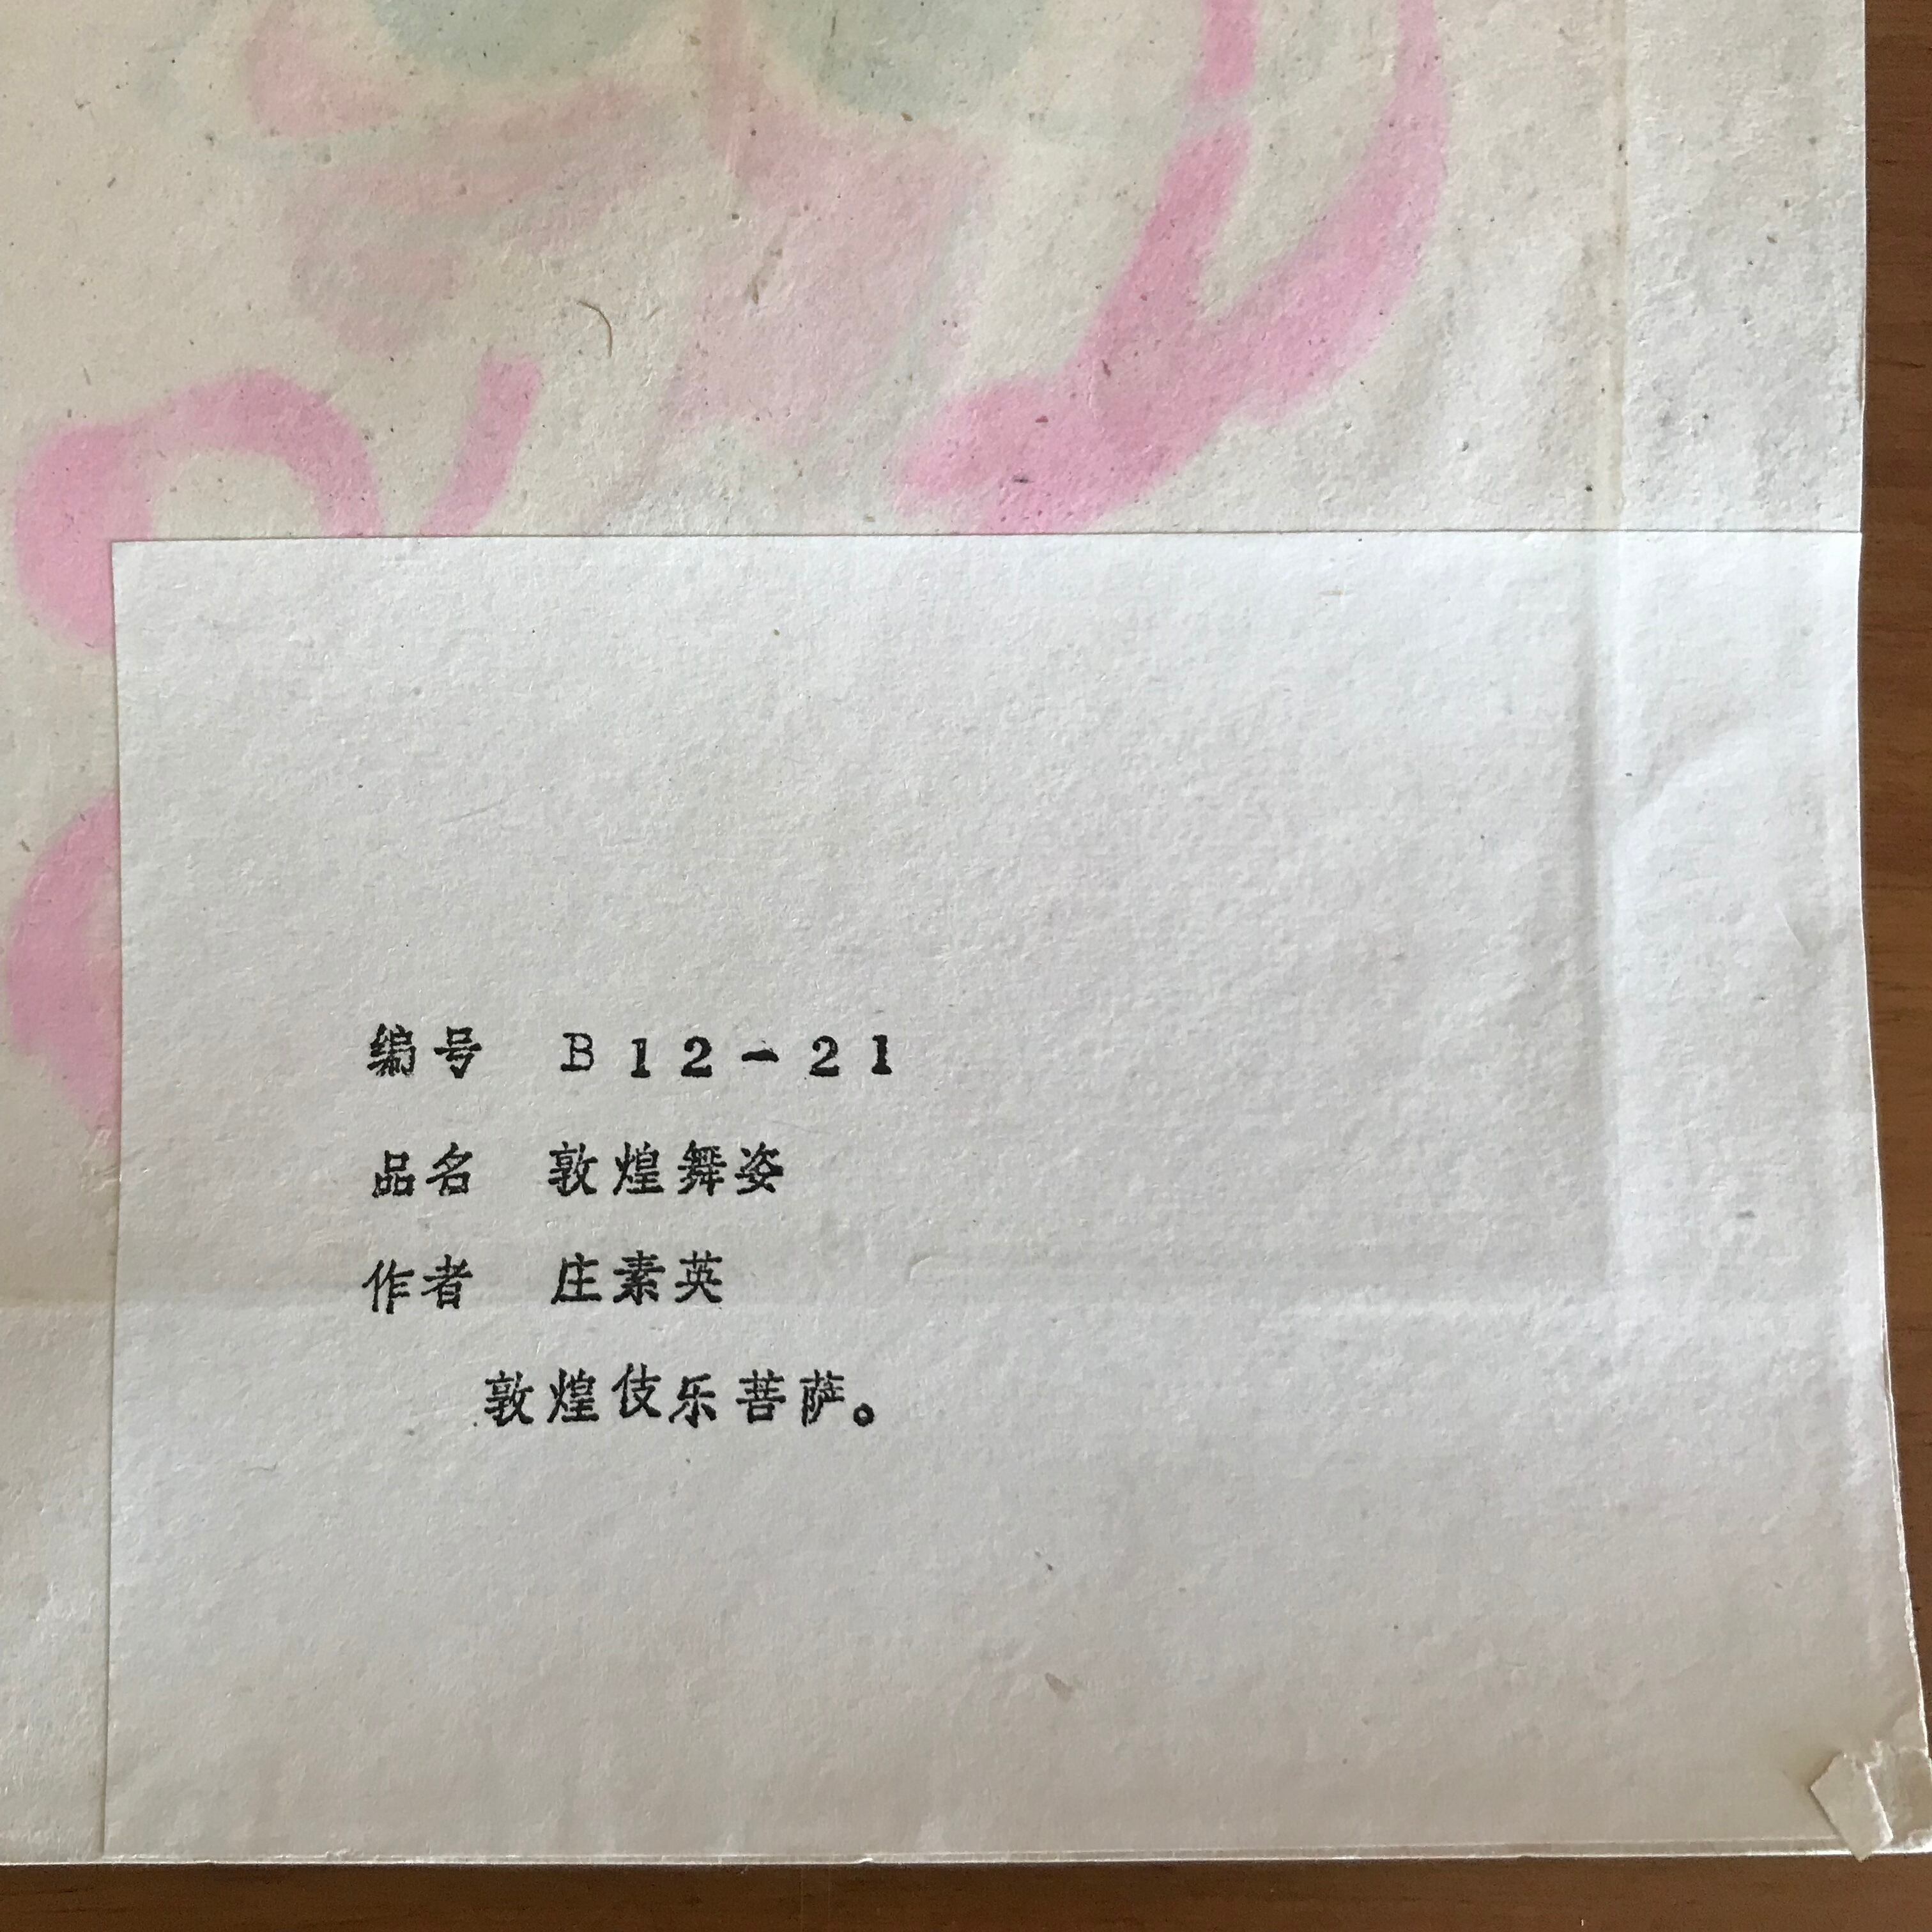 编号 B12-21
品名 敦煌舞姿
作者 庄素英
敦煌伎乐菩萨。